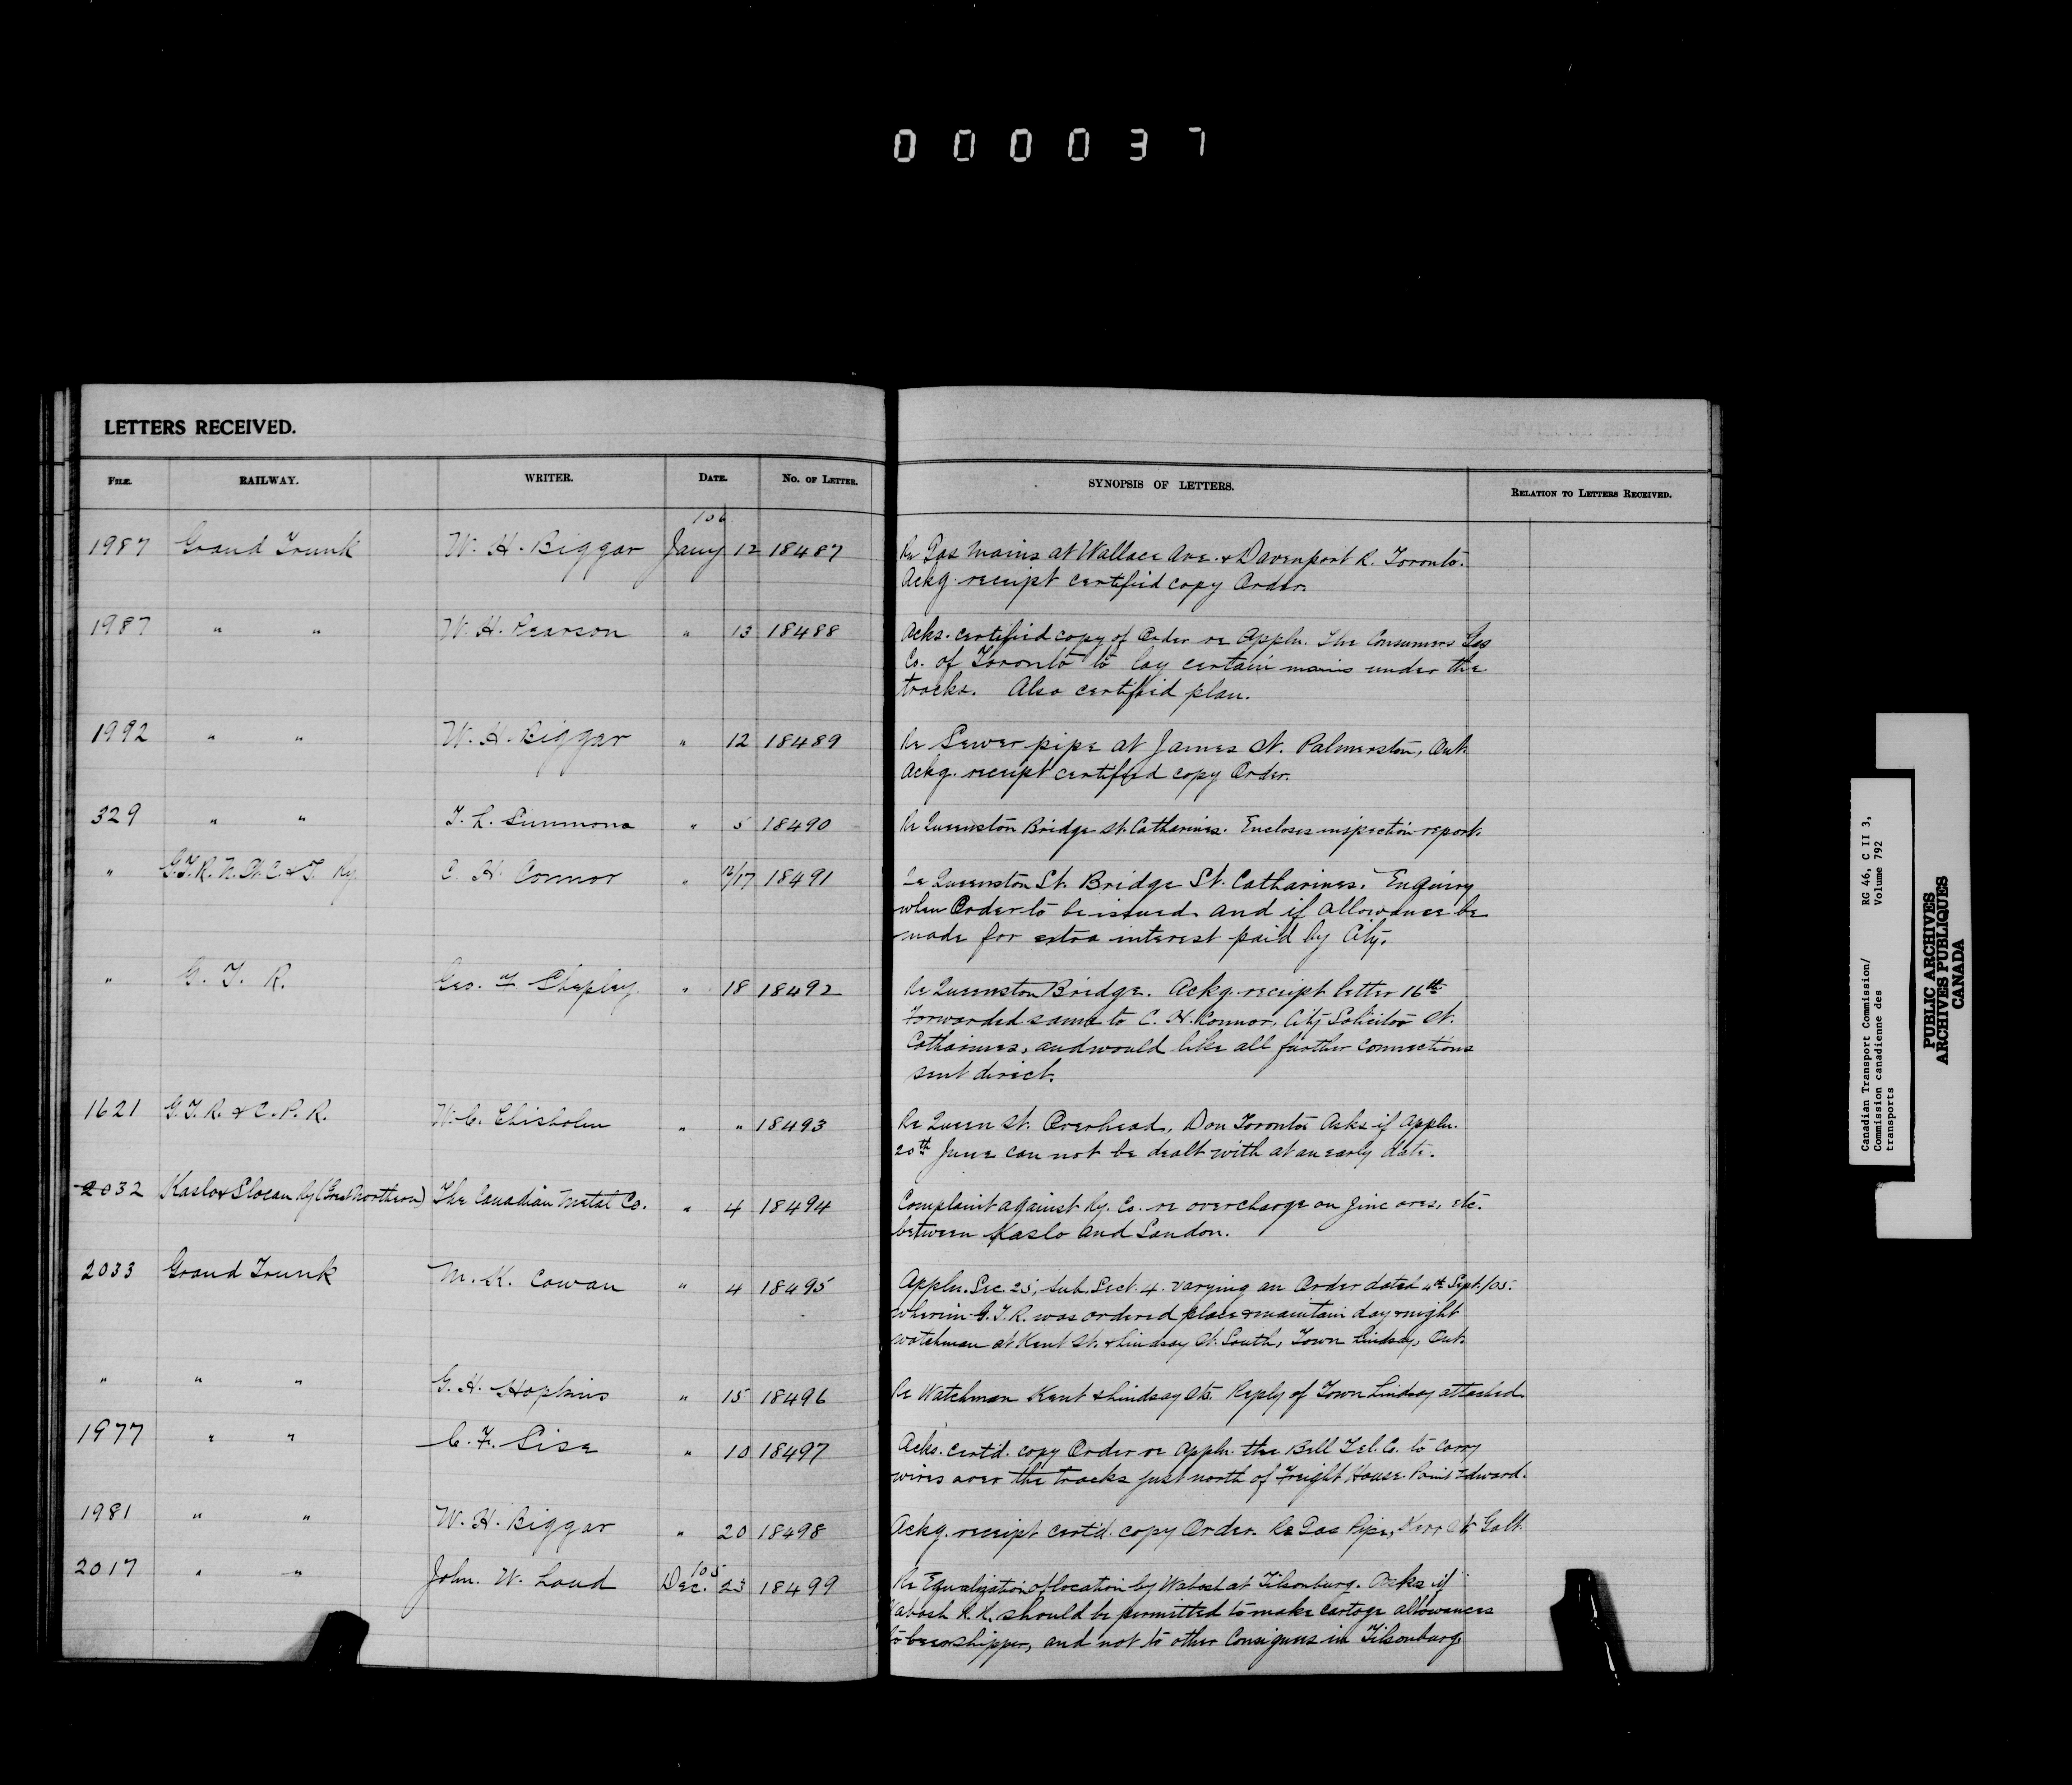 000037
LETTERS RECEIVED.
FILE. RAILWAY. WRITER. DATE. No. OF LETTER. SYNOPSIS OF LETTERS. RELATION TO LETTERS RECEIVED.
1987 Grand Trunk W. H. Biggar Jany /06 12 18487 Re Gas Mains at Wallace Ave. & Davenport R. Toronto.
Ackg. receipt certified copy Order.
1987 " " W. H. Pearson " 13 18488 Acks. certified copy of Order re Appln. The Consumers Gas
Co. of Toronto to lay certain mains under the
tracks. Also certified plan.
1992 " " W. H. Biggar " 12 18489 Re Sewer pipe at James St. Palmerston, Ont.
Ackg. receipt certified copy Order.
329 " " T. L. Simmons " 5 18490 Re Queenston Bridge St. Catharines. Encloses inspection report.
" G.T.R. N. St. C. & T. Ry. C. H. Connor " 16/17 18491 Re Queenston St. Bridge St. Catharines. Enquiry
when Order to be issued and if allowance be
made for extra interest paid by City.
" G. T. R. Geo. Shepley. " 18 18492 Re Queenston Bridge. Ackg. receipt letter 16th
Forwarded same to C. H. Connor, City Solicitor St.
Catharines, and would like all further connections
sent direct.
1621 G.T.R. & C.P.R. W. C. Chisholm " " 18493 Re Queen St. Overhead, Don Toronto Asks if Appln.
20th June can not be dealt with at an early date.
2032 Kaslo & Slocan Ry (Great Northern) The Canadian Metal Co. " 4 18494 Complaint against Ry. Co. re overcharge on Zinc ores, etc.
between Kaslo and Sandon.
2033 Grand Trunk M. K. Cowan " 4 18495 Appln. Sec. 25, Sub. Sect. 4. varying an Order dated 4th Sept. /05.
wherein G.T.R. was ordered place & maintain day & night
watchman at Kent St. & Lindsay St. South, Town Lindsay, Ont.
" " " G. H. Hopkins " 15 18496 Re Watchman Kent & Lindsay Sts. Reply of Town Lindsay attached.
1977 " " C. F. Sise " 10 18497 Acks. certd. copy Order re Appln. the Bell Tel. Co. to carry
wires over the tracks just north of Freight House Point Edward.
1981 " " W. H. Biggar " 20 18498 Ackg. receipt certd. copy Order. Re Gas Pipe, Kerr St. Galt.
2017 " " John. W. Loud Dec. /05 23 18499 Re Equalization of location by Wabash at Tilsonburg. Asks if
Wabash R.R. should be permitted to make cartage allowances
to shipper, and not to other Consignees in Tilsonburg.
Canadian Transport Commission/ RG 46, C II 3,
Commission canadienne des Volume 792
transports
PUBLIC ARCHIVES
ARCHIVES PUBLIQUES
CANADA